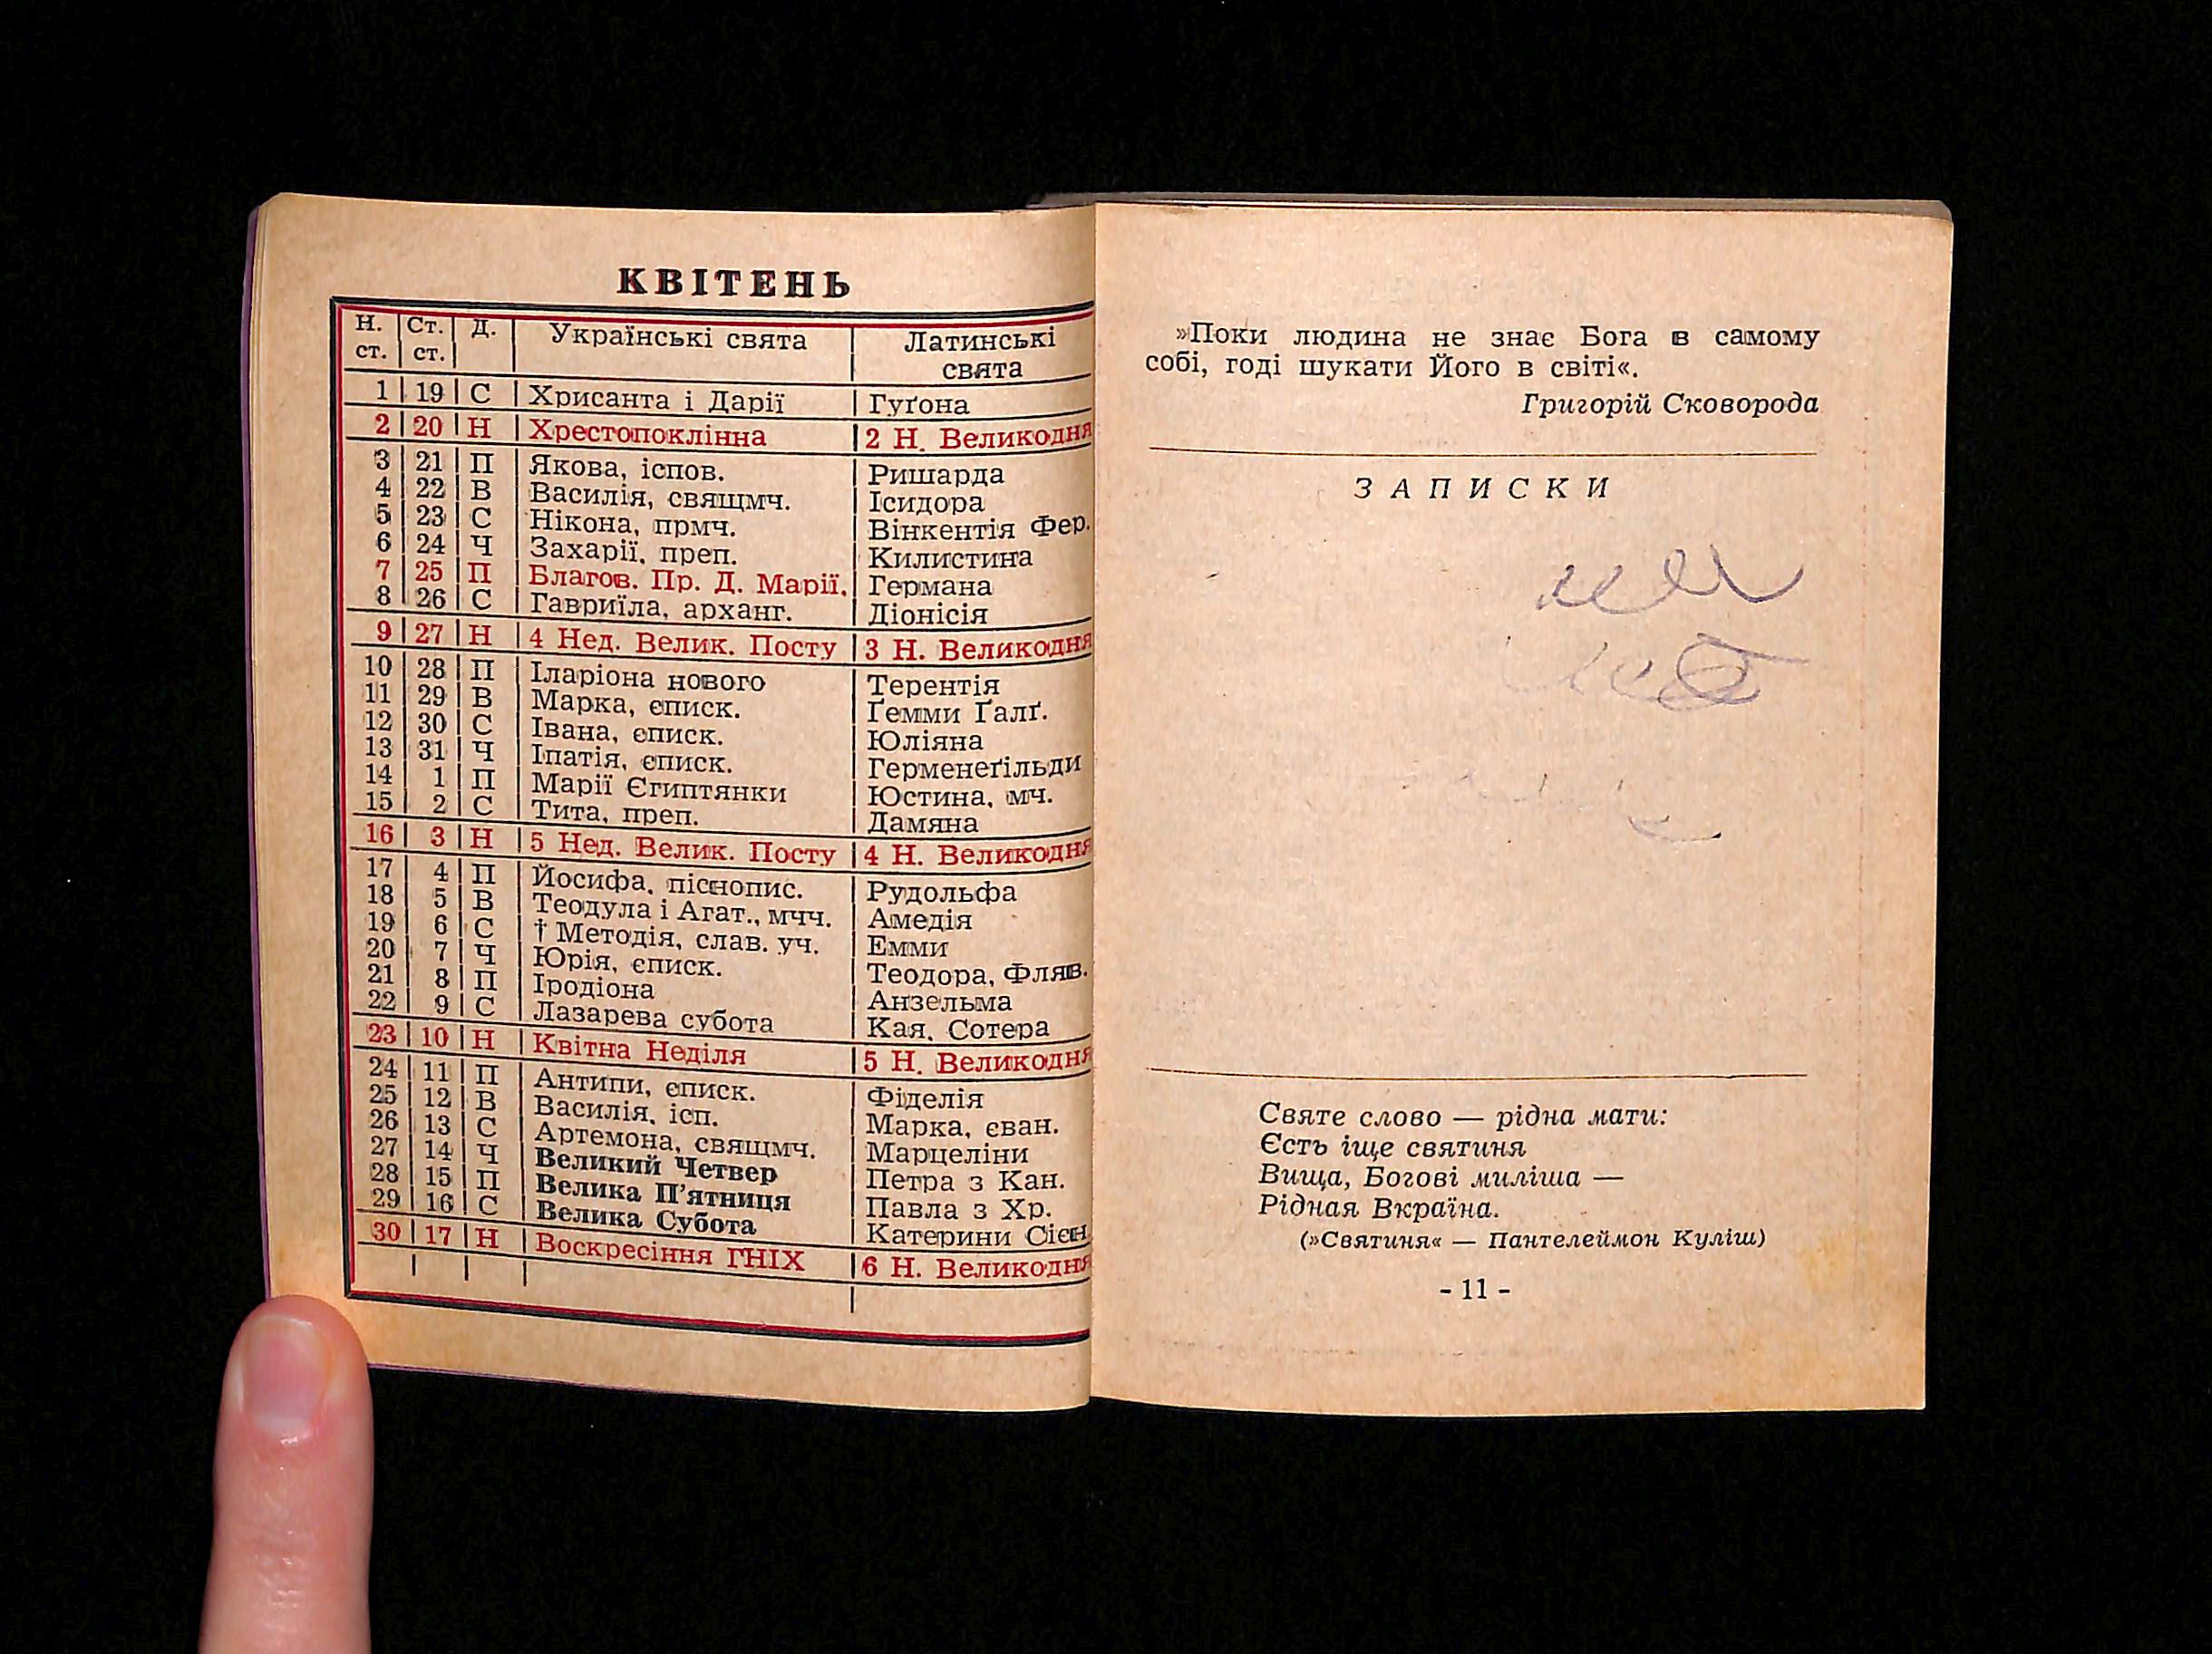 КВІТЕНЬ
Н. ст. | Ст. ст. | Д. | Українські свята | Латинські свята
1 | 19 | С | Хрисанта і Дарії | Гуґона
2 | 20 | Н | Хрестопоклінна | 2 Н. Великодня
3 | 21 | П | Якова, іспов. | Ришарда
4 | 22 | В | Василія, свящмч. | Ісидора
5 | 23 | С | Нікона, прмч. | Вінкентія Фер.
6 | 24 | Ч | Захарії, преп. | Килистина
7 | 25 | П | Благов. Пр. Д. Марії. | Германа
8 | 26 | С | Гавриїла, арханг. | Діонісія
9 | 27 | Н | 4 Нед. Велик. Посту | 3 Н. Великодня
10 | 28 | П | Іларіона нового | Терентія
11 | 29 | В | Марка, єписк. | Ґемми Ґалґ.
12 | 30 | С | Івана, єписк. | Юліяна
13 | 31 | Ч | Іпатія, єписк. | Герменеґільди
14 | 1 | П | Марії Єгиптянки | Юстина, мч.
15 | 2 | С | Тита, преп. | Дамяна
16 | 3 | Н | 5 Нед. Велик. Посту | 4 Н. Великодня
17 | 4 | П | Йосифа, піснопис. | Рудольфа
18 | 5 | В | Теодула і Агат., мчч. | Амедія
19 | 6 | С | † Методія, слав. уч. | Емми
20 | 7 | Ч | Юрія, єписк. | Теодора, Фляв.
21 | 8 | П | Іродіона | Анзельма
22 | 9 | С | Лазарева субота | Кая, Сотера
23 | 10 | Н | Квітна Неділя | 5 Н. Великодня
24 | 11 | П | Антипи, єписк. | Фіделія
25 | 12 | В | Василія, ісп. | Марка, єван.
26 | 13 | С | Артемона, свящмч. | Марцеліни
27 | 14 | Ч | Великий Четвер | Петра з Кан.
28 | 15 | П | Велика П'ятниця | Павла з Хр.
29 | 16 | С | Велика Субота | Катерини Сієн
30 | 17 | Н | Воскресіння ГНІХ | 6 Н. Великодня
»Поки людина не знає Бога в самому
собі, годі шукати Його в світі«.
Григорій Сковорода
ЗАПИСКИ
Святе слово — рідна мати:
Єсть іще святиня
Вища, Богові миліша —
Рідная Вкраїна.
(»Святиня« — Пантелеймон Куліш)
- 11 -